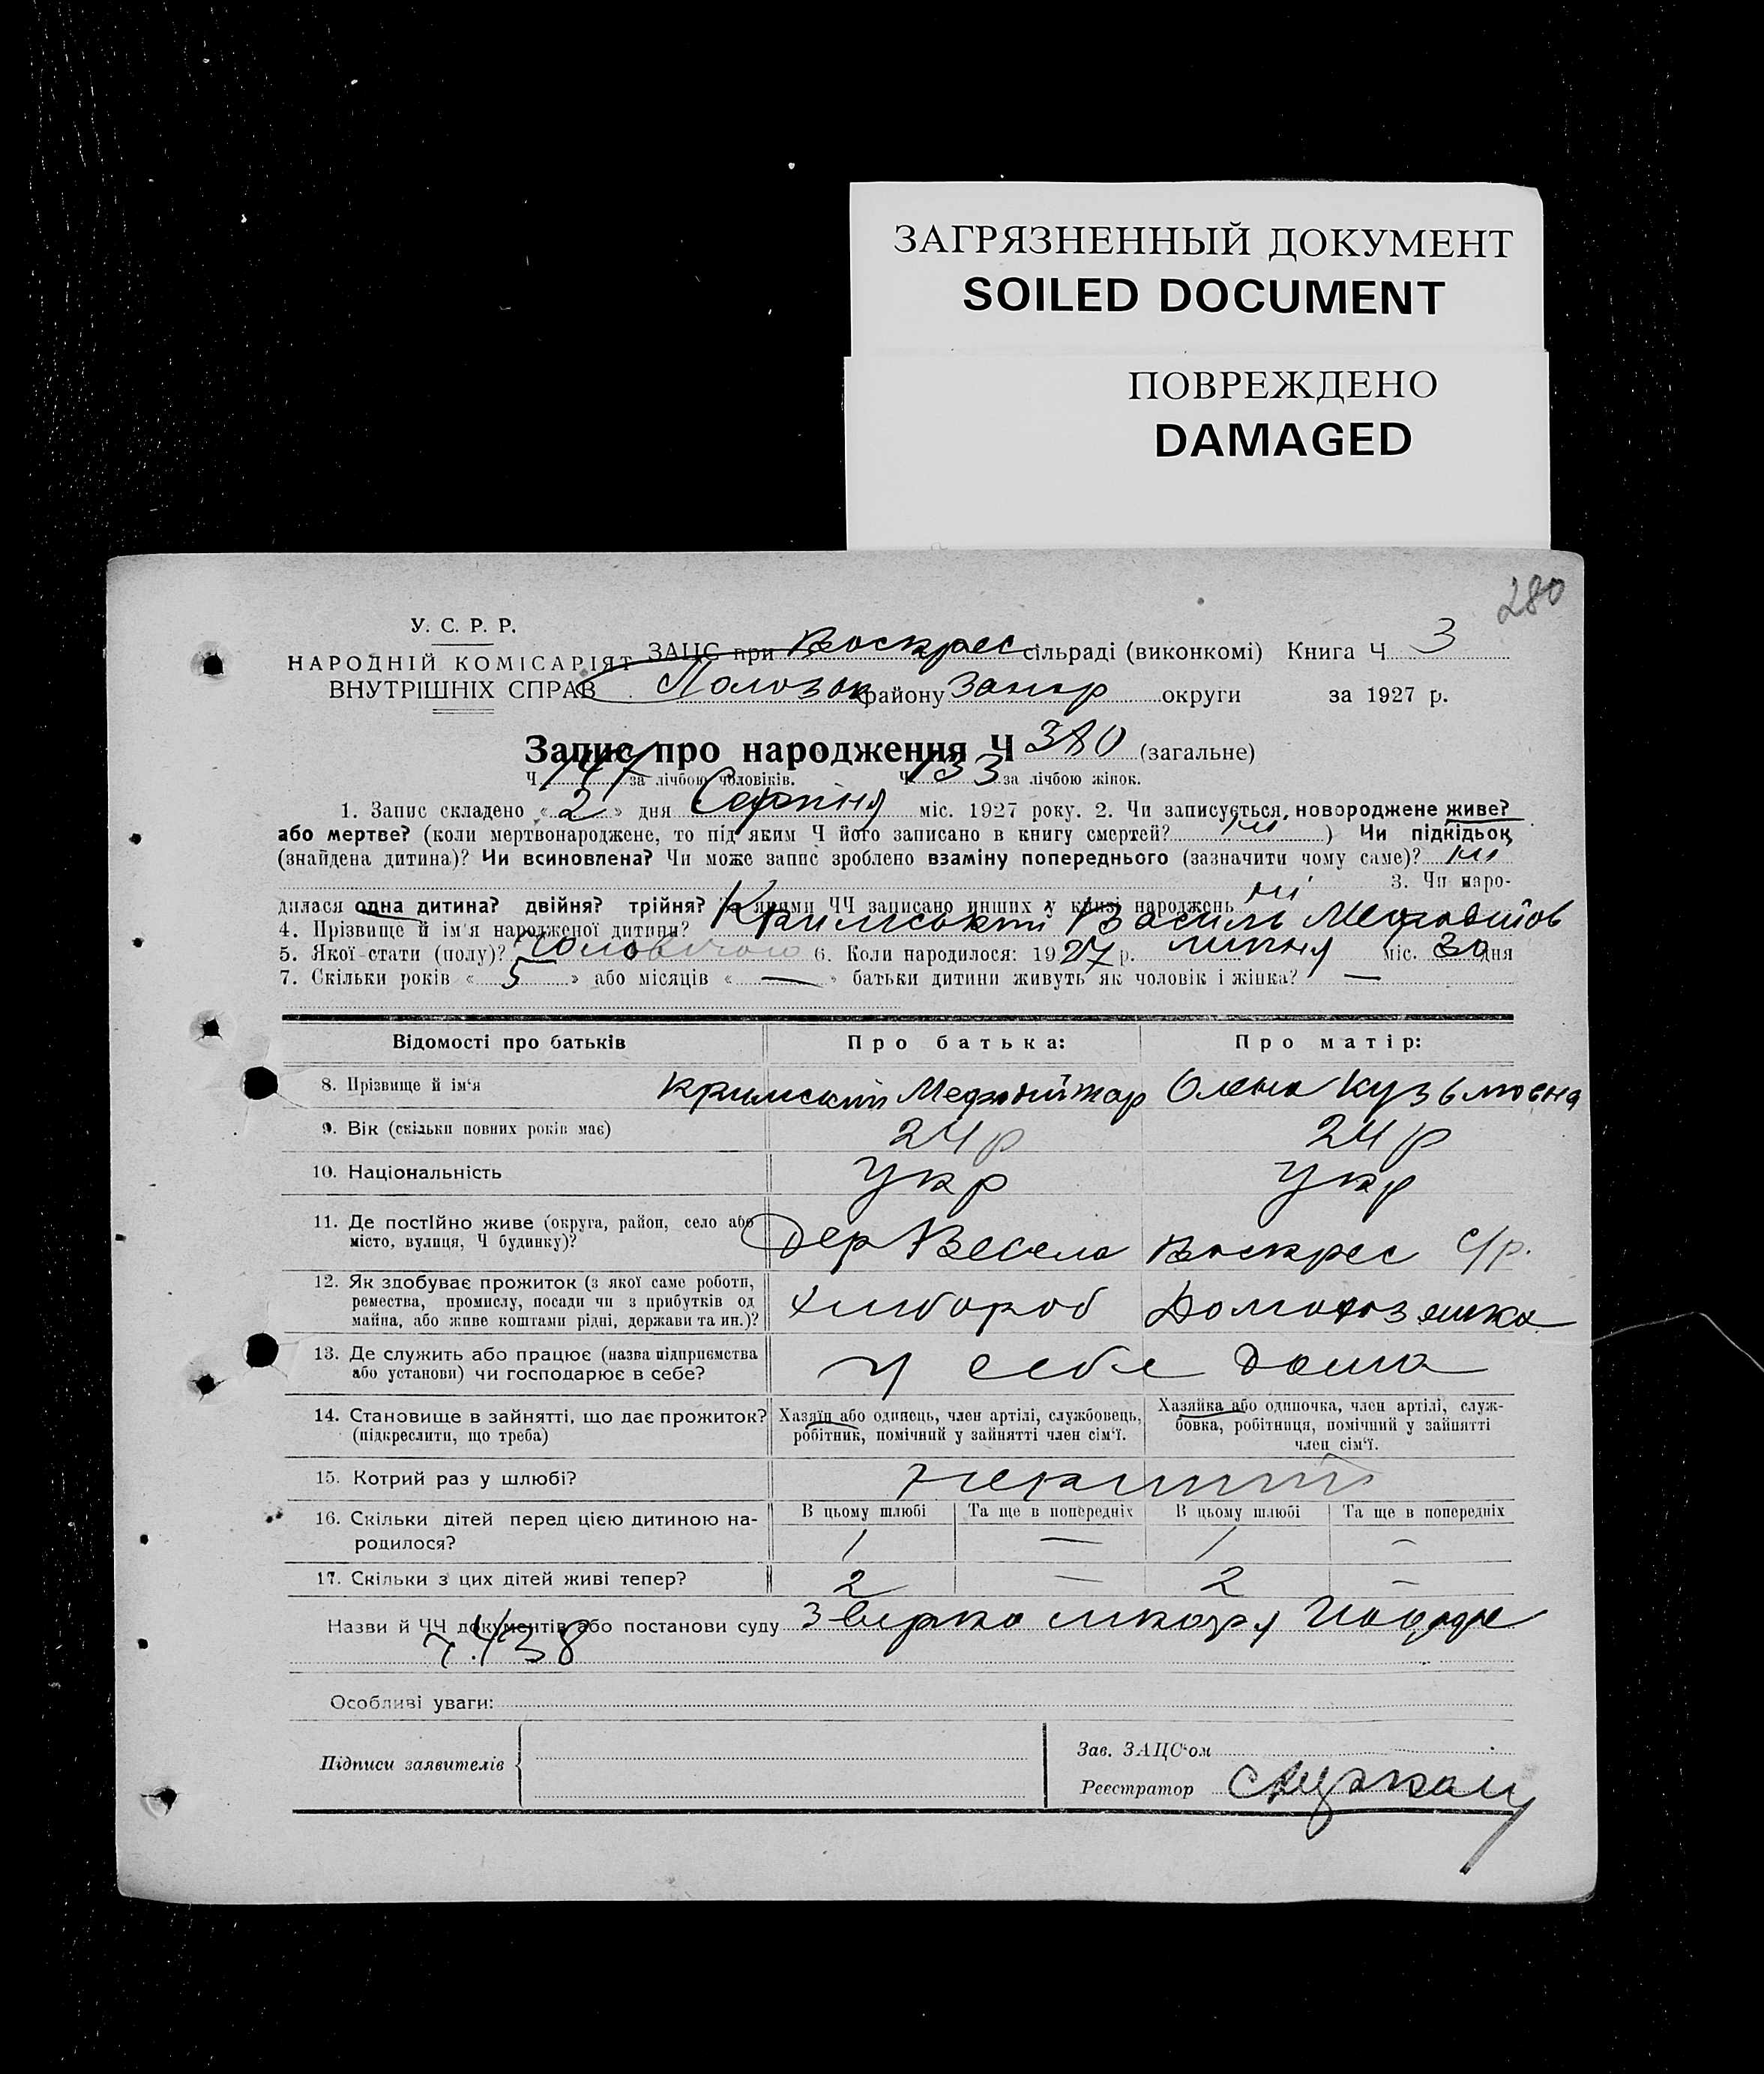 ЗАГРЯЗНЕННЫЙ ДОКУМЕНТ
SOILED DOCUMENT
ПОВРЕЖДЕНО
DAMAGED
280
У. С. Р. Р.
НАРОДНІЙ КОМІСАРІЯТ
ВНУТРІШНІХ СПРАВ
ЗАЦС при Воскрес сільраді (виконкомі) Книга Ч 3
Пологов району Запор округи за 1927 р.
Запис про народження Ч 380 (загальне)
Ч 147 за лічбою чоловіків. Ч 133 за лічбою жінок.
1. Запис складено «2» дня Серпня міс. 1927 року. 2. Чи записується, новороджене живе?
або мертве? (коли мертвонароджене, то під яким Ч його записано в книгу смертей? ні ) Чи підкідьок
(знайдена дитина)? Чи всиновлена? Чи може запис зроблено взаміну попереднього (зазначити чому саме)? ні
3. Чи наро-
дилася одна дитина? двійня? трійня? За якими ЧЧ записано инших у книзі народжень ні
4. Прізвище й ім'я народженої дитини? Кримський Василь
5. Якої стати (полу)? Чоловічою 6. Коли народилося: 1927 р. липня міс. 30 дня
7. Скільки років « 5 » або місяців « — » батьки дитини живуть як чоловік і жінка? —
Відомості про батьків Про батька: Про матір:
8. Прізвище й ім'я Кримский Олена Кузьмовна
9. Вік (скільки повних років має) 24 р 24 р
10. Національність Укр Укр
11. Де постійно живе (округа, район, село або
місто, вулиця, Ч будинку)? Дер Весела Воскрес с/р.
12. Як здобуває прожиток (з якої саме роботи,
ремества, промислу, посади чи з прибутків од
майна, або живе коштами рідні, держави та ин.)? Хлібороб
13. Де служить або працює (назва підприємства
або установи) чи господарює в себе? У себе дома
14. Становище в зайнятті, що дає прожиток?
(підкреслити, що треба)
Хазяїн або одинець, член артілі, службовець,
робітник, помічний у зайнятті член сім'ї.
Хазяйка або одиночка, член артілі, служ-
бовка, робітниця, помічний у зайнятті
член сім'ї.
15. Котрий раз у шлюбі? перший
16. Скільки дітей перед цією дитиною на-
родилося?
В цьому шлюбі Та ще в попередніх В цьому шлюбі Та ще в попередніх
1 — 1 —
17. Скільки з цих дітей живі тепер? 2 — 2 —
Назви й ЧЧ документів або постанови суду
438
Особливі уваги:
Підписи заявителів
Зав. ЗАЦС'ом
Реєстратор